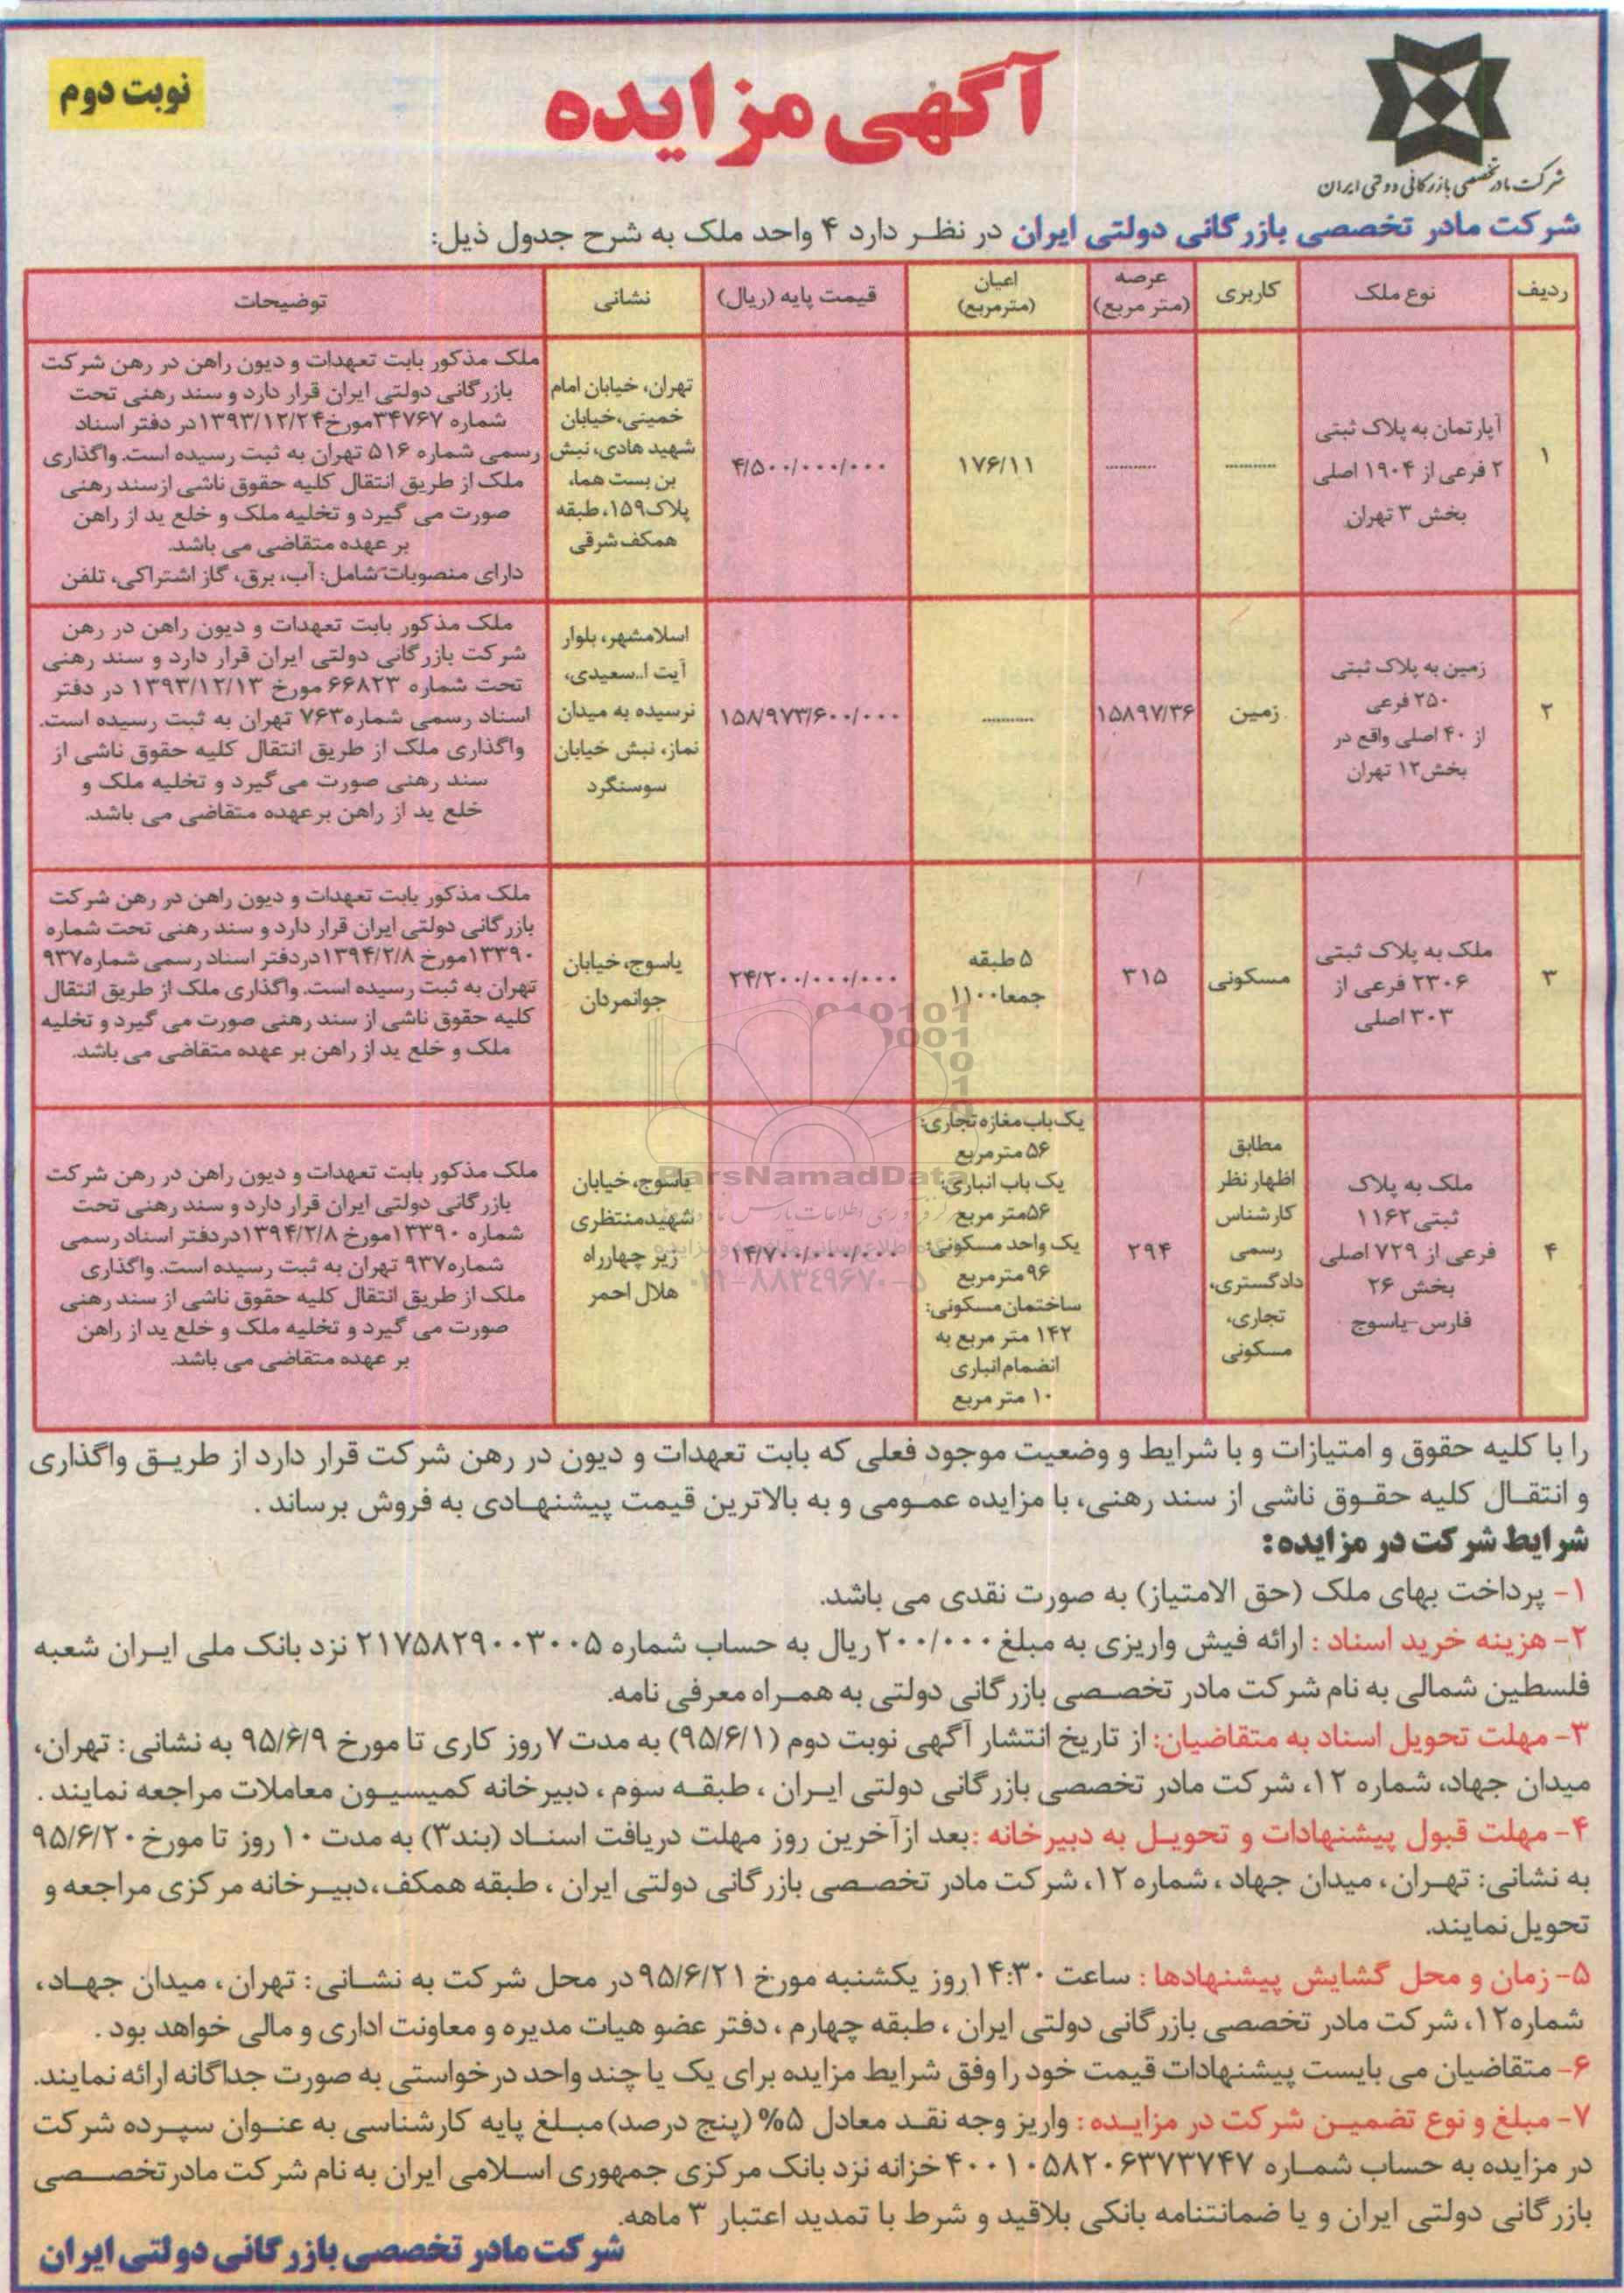 نوبت دوم
آگهی مزایده
شرکت مادر تخصصی بازرگانی دولتی ایران
شرکت مادر تخصصی بازرگانی دولتی ایران در نظر دارد ۴ واحد ملک به شرح جدول ذیل:
ردیف
نوع ملک
کاربری
عرصه
(متر مربع)
اعیان
(مترمربع)
قیمت پایه (ریال)
نشانی
توضیحات
۱
آپارتمان به پلاک ثبتی
۲ فرعی از ۱۹۰۴ اصلی
بخش ۳ تهران
............
............
۱۷۶/۱۱
۴/۵۰۰/۰۰۰/۰۰۰
تهران، خیابان امام
خمینی،خیابان
شهید هادی، نبش
بن بست هما،
پلاک۱۵۹، طبقه
همکف شرقی
ملک مذکور بابت تعهدات و دیون راهن در رهن شرکت
بازرگانی دولتی ایران قرار دارد و سند رهنی تحت
شماره ۳۴۷۶۷مورخ۱۳۹۳/۱۲/۲۴در دفتر اسناد
رسمی شماره ۵۱۶ تهران به ثبت رسیده است. واگذاری
ملک از طریق انتقال کلیه حقوق ناشی ازسند رهنی
صورت می گیرد و تخلیه ملک و خلع ید از راهن
بر عهده متقاضی می باشد.
دارای منصوبات شامل: آب، برق، گاز اشتراکی، تلفن
۲
زمین به پلاک ثبتی
۲۵۰ فرعی
از ۴۰ اصلی واقع در
بخش۱۲ تهران
زمین
۱۵۸۹۷/۳۶
............
۱۵۸/۹۷۳/۶۰۰/۰۰۰
اسلامشهر، بلوار
آیت ا..سعیدی،
نرسیده به میدان
نماز، نبش خیابان
سوسنگرد
ملک مذکور بابت تعهدات و دیون راهن در رهن
شرکت بازرگانی دولتی ایران قرار دارد و سند رهنی
تحت شماره ۶۶۸۲۳ مورخ ۱۳۹۳/۱۲/۱۳ در دفتر
اسناد رسمی شماره۷۶۳ تهران به ثبت رسیده است.
واگذاری ملک از طریق انتقال کلیه حقوق ناشی از
سند رهنی صورت می گیرد و تخلیه ملک و
خلع ید از راهن برعهده متقاضی می باشد.
۳
ملک به پلاک ثبتی
۲۳۰۶ فرعی از
۳۰۳ اصلی
مسکونی
۳۱۵
۵ طبقه
جمعا۱۱۰۰
۲۴/۲۰۰/۰۰۰/۰۰۰
یاسوج، خیابان
جوانمردان
ملک مذکور بابت تعهدات و دیون راهن در رهن شرکت
بازرگانی دولتی ایران قرار دارد و سند رهنی تحت شماره
۱۳۳۹۰مورخ ۱۳۹۴/۲/۸دردفتر اسناد رسمی شماره۹۳۷
تهران به ثبت رسیده است. واگذاری ملک از طریق انتقال
کلیه حقوق ناشی از سند رهنی صورت می گیرد و تخلیه
ملک و خلع ید از راهن بر عهده متقاضی می باشد.
۴
ملک به پلاک
ثبتی۱۱۶۲
فرعی از ۷۲۹ اصلی
بخش ۲۶
فارس-یاسوج
مطابق
اظهار نظر
کارشناس
رسمی
دادگستری،
تجاری،
مسکونی
۲۹۴
یک باب مغازه تجاری:
۵۶ مترمربع
یک باب انباری:
۵۶متر مربع
یک واحد مسکونی:
۹۶مترمربع
ساختمان مسکونی:
۱۴۲ متر مربع به
انضمام انباری
۱۰ متر مربع
۱۴/۷۰۰/۰۰۰/۰۰۰
یاسوج، خیابان
شهیدمنتظری
زیر چهارراه
هلال احمر
ملک مذکور بابت تعهدات و دیون راهن در رهن شرکت
بازرگانی دولتی ایران قرار دارد و سند رهنی تحت
شماره ۱۳۳۹۰مورخ ۱۳۹۴/۲/۸دردفتر اسناد رسمی
شماره۹۳۷ تهران به ثبت رسیده است. واگذاری
ملک از طریق انتقال کلیه حقوق ناشی از سند رهنی
صورت می گیرد و تخلیه ملک و خلع ید از راهن
بر عهده متقاضی می باشد.
ParsNamadData
۰۲۱-۸۸۳۴۹۶۷۰-۵
را با کلیه حقوق و امتیازات و با شرایط و وضعیت موجود فعلی که بابت تعهدات و دیون در رهن شرکت قرار دارد از طریق واگذاری
و انتقال کلیه حقوق ناشی از سند رهنی، با مزایده عمومی و به بالاترین قیمت پیشنهادی به فروش برساند .
شرایط شرکت در مزایده:
۱- پرداخت بهای ملک (حق الامتیاز) به صورت نقدی می باشد.
۲- هزینه خرید اسناد : ارائه فیش واریزی به مبلغ ۲۰۰/۰۰۰ ریال به حساب شماره ۲۱۷۵۸۲۹۰۰۳۰۰۵ نزد بانک ملی ایران شعبه
فلسطین شمالی به نام شرکت مادر تخصصی بازرگانی دولتی به همراه معرفی نامه.
۳- مهلت تحویل اسناد به متقاضیان: از تاریخ انتشار آگهی نوبت دوم (۹۵/۶/۱) به مدت ۷ روز کاری تا مورخ ۹۵/۶/۹ به نشانی: تهران،
میدان جهاد، شماره ۱۲، شرکت مادر تخصصی بازرگانی دولتی ایران ، طبقه سوم ، دبیرخانه کمیسیون معاملات مراجعه نمایند .
۴- مهلت قبول پیشنهادات و تحویل به دبیرخانه :بعد ازآخرین روز مهلت دریافت اسناد (بند۳) به مدت ۱۰ روز تا مورخ ۹۵/۶/۲۰
به نشانی: تهران، میدان جهاد ، شماره ۱۲، شرکت مادر تخصصی بازرگانی دولتی ایران ، طبقه همکف،دبیرخانه مرکزی مراجعه و
تحویل نمایند.
۵- زمان و محل گشایش پیشنهادها : ساعت ۱۴:۳۰روز یکشنبه مورخ ۹۵/۶/۲۱در محل شرکت به نشانی: تهران، میدان جهاد،
شماره۱۲، شرکت مادر تخصصی بازرگانی دولتی ایران ، طبقه چهارم ، دفتر عضو هیات مدیره و معاونت اداری و مالی خواهد بود .
۶- متقاضیان می بایست پیشنهادات قیمت خود را وفق شرایط مزایده برای یک یا چند واحد درخواستی به صورت جداگانه ارائه نمایند.
۷- مبلغ و نوع تضمین شرکت در مزایده : واریز وجه نقد معادل ۵% (پنج درصد) مبلغ پایه کارشناسی به عنوان سپرده شرکت
در مزایده به حساب شماره ۴۰۰۱۰۵۸۲۰۶۳۷۳۷۴۷ خزانه نزد بانک مرکزی جمهوری اسلامی ایران به نام شرکت مادر تخصصی
بازرگانی دولتی ایران و یا ضمانتنامه بانکی بلاقید و شرط با تمدید اعتبار ۳ ماهه.
شرکت مادر تخصصی بازرگانی دولتی ایران